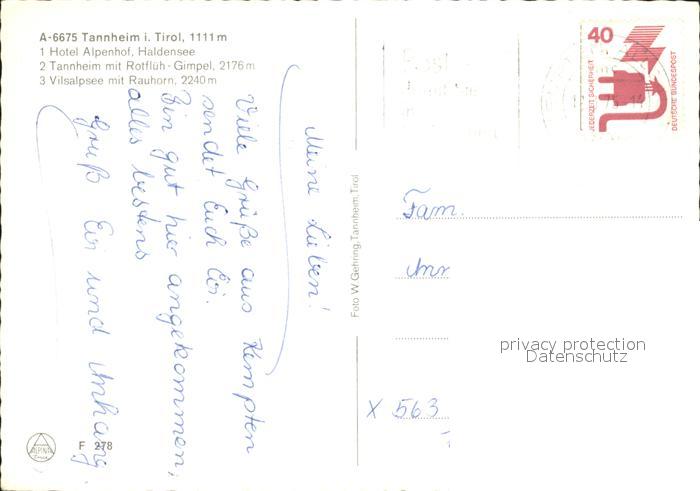 A-6675 Tannheim i. Tirol, 1111 m
1 Hotel Alpenhof, Haldensee
2 Tannheim mit Rotflüh - Gimpel, 2176 m
3 Vilsalpsee mit Rauhorn, 2240 m
Meine Lieben!
Viele Grüße aus Kempten
sendet Euch Evi.
Bin gut hier angekommen,
alles bestens
Gruß Evi und Anhang.
Foto W. Gehring, Tannheim, Tirol
F 278
ALPINA
40
JEDERZEIT SICHERHEIT
DEUTSCHE BUNDESPOST
Fam.
privacy protection
Datenschutz
X 563